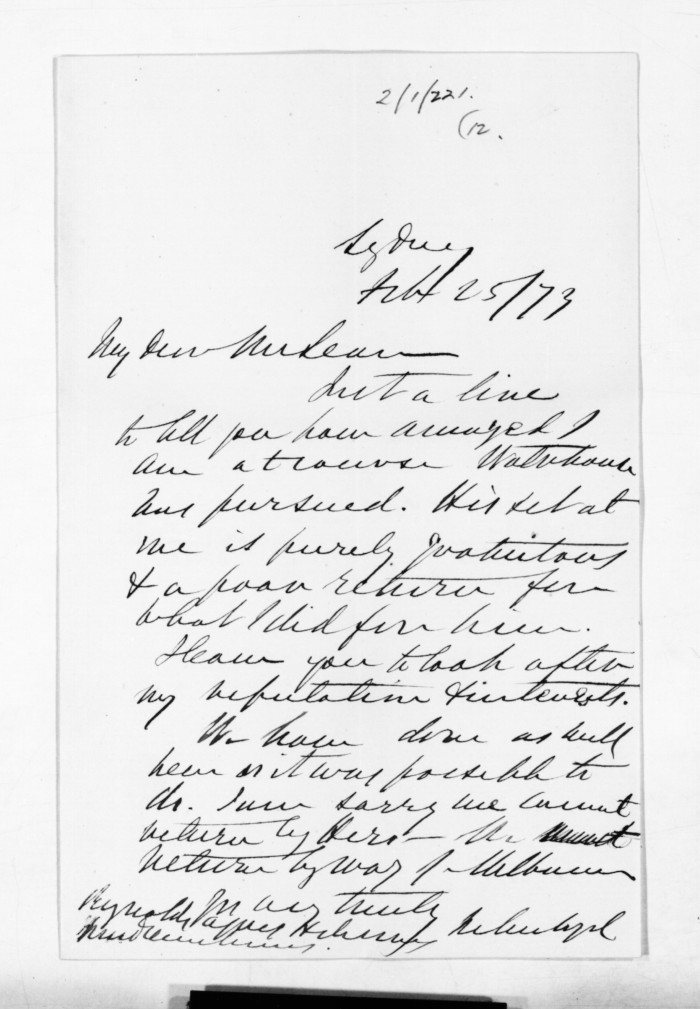 2/1/221.
(12.
Sydney
Feb 25/73
My Dear McLean
Just a line
to tell you how amazed I
am at course Waterhouse
has pursued. His set at
me is purely gratuitous
& a poor return for
what I did for him.
I leave you to look after
my reputation & interests.
We have done as well
here as it was possible to
do. I am sorry we cannot
return by Hero - We
return by way of Melbourne
Very truly
Reynolds